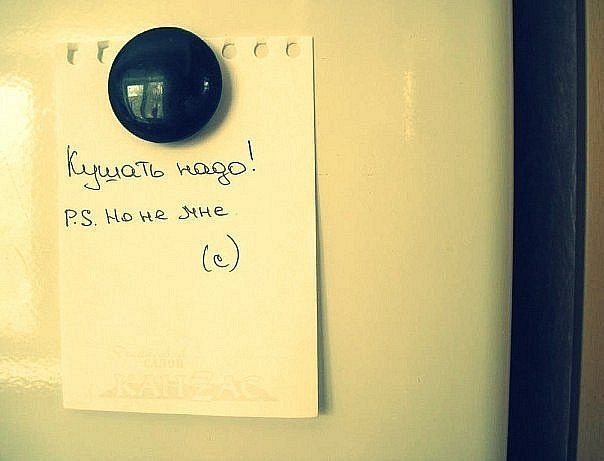 Кушать надо!
P.S. Но не мне
(с)
САЛОН
КАНЗАС